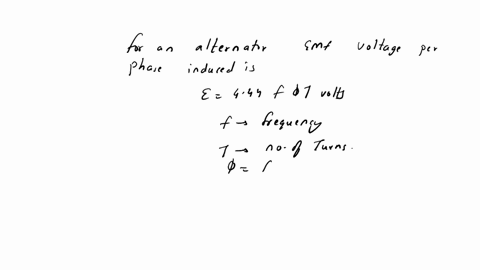 for an alternator emf voltage per
phase induced is
ε = 4.44 f ϕ T volts
f → frequency
T → no. of Turns.
ϕ = (